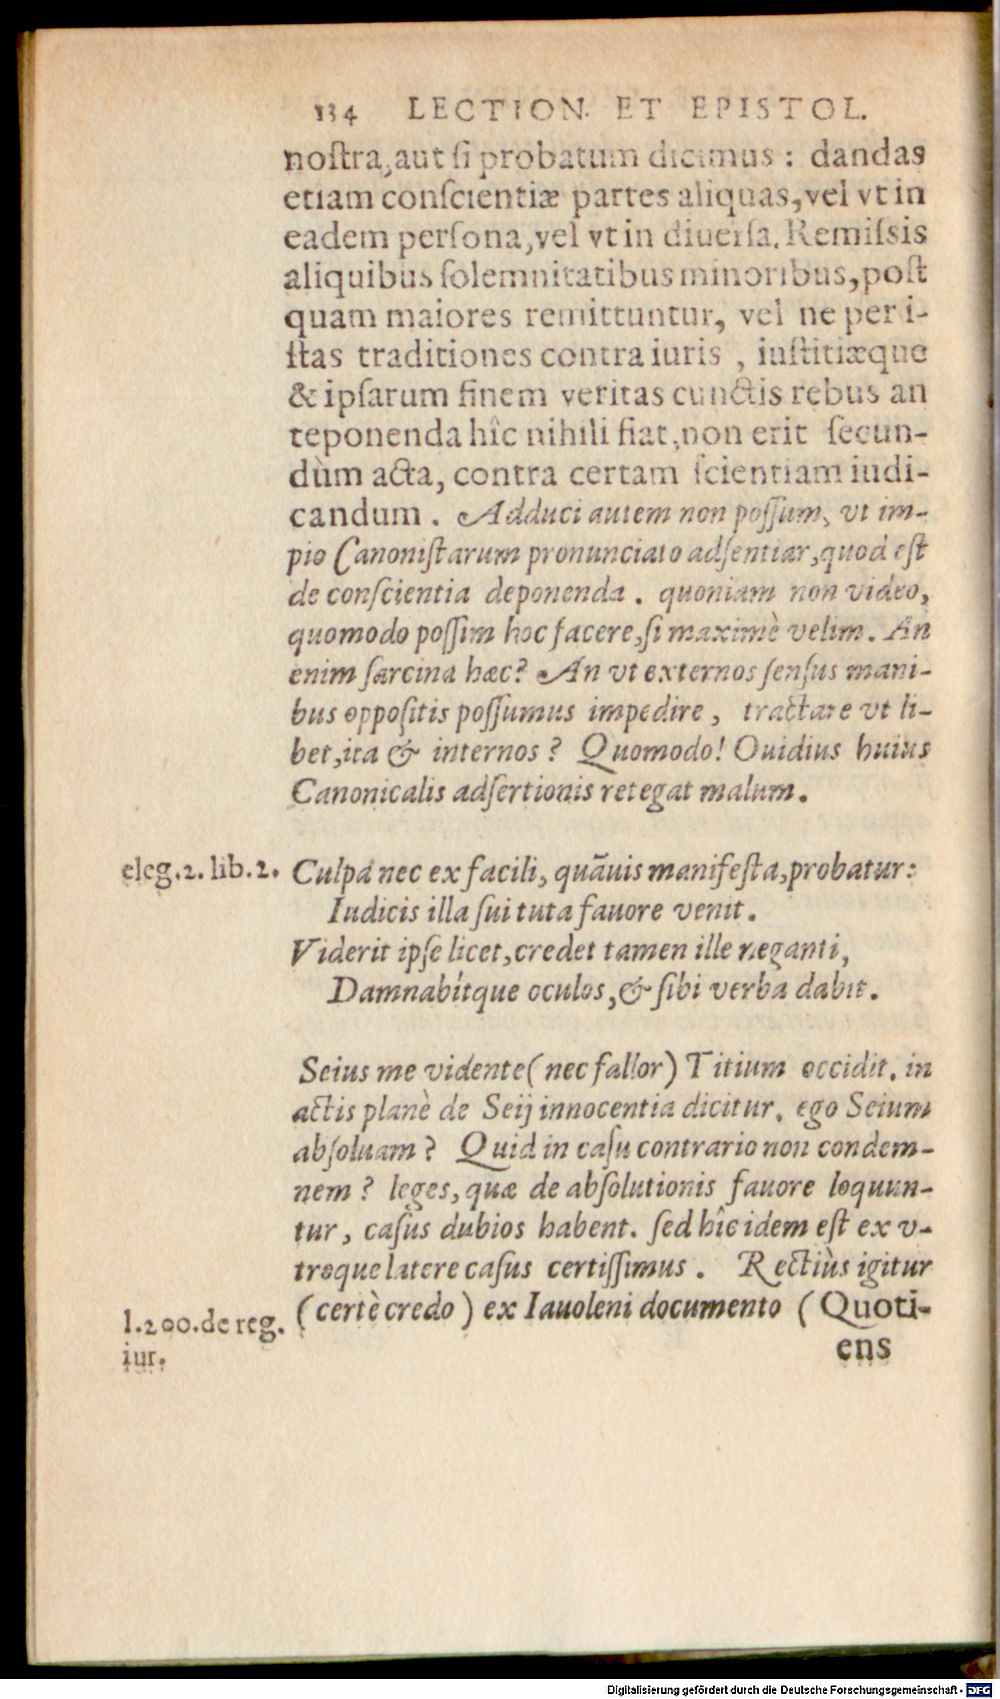 134 LECTION. ET EPISTOL.
noſtra, aut ſi probatum dicimus: dandas
etiam conſcientiæ partes aliquas, vel vt in
eadem perſona, vel vt in diuerſa. Remiſsis
aliquibus ſolemnitatibus minoribus, poſt
quam maiores remittuntur, vel ne per i-
ſtas traditiones contra iuris, iuſtitiæque
& ipſarum finem veritas cunctis rebus an
teponenda hîc nihili fiat, non erit ſecun-
dùm acta, contra certam ſcientiam iudi-
candum. Adduci autem non poſſum, vt im-
pio Canoniſtarum pronunciato adſentiar, quod eſt
de conſcientia deponenda. quoniam non video,
quomodo poſſim hoc facere, ſi maximè velim. An
enim ſarcina hæc? An vt externos ſenſus mani-
bus oppoſitis poſſumus impedire, tractare vt li-
bet, ita & internos? Quomodo! Ouidius huius
Canonicalis adſertionis retegat malum.
eleg. 2. lib. 2. Culpa nec ex facili, quãuis manifeſta, probatur:
Iudicis illa ſui tuta fauore venit.
Viderit ipſe licet, credet tamen ille neganti,
Damnabítque oculos, & ſibi verba dabit.
Seius me vidente (nec fallor) Titium occidit. in
actis planè de Seij innocentia dicitur. ego Seium
abſoluam? Quid in caſu contrario non condem-
nem? leges, quæ de abſolutionis fauore loquun-
tur, caſus dubios habent. ſed hîc idem eſt ex v-
troque latere caſus certiſſimus. Rectiùs igitur
(certè credo) ex Iauoleni documento (Quoti-
l. 200. de reg.
iur.
ens
Digitalisierung gefördert durch die Deutsche Forschungsgemeinschaft - DFG